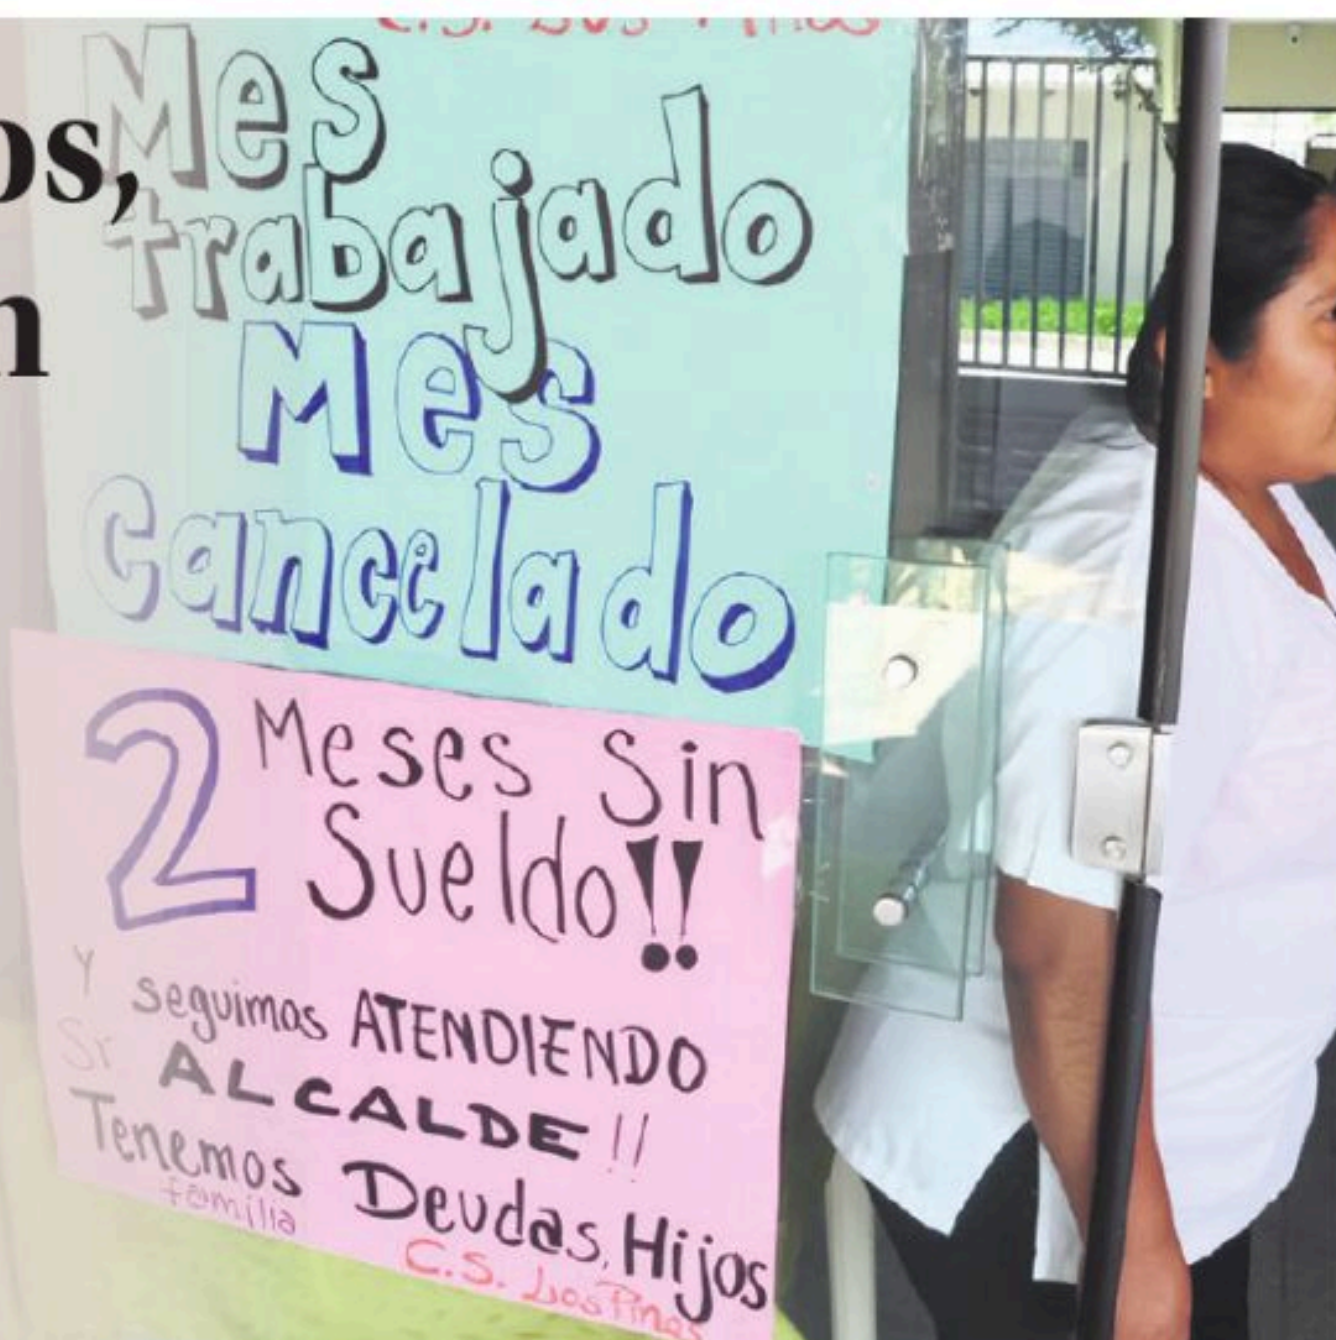 C.S. Los Pinos
os,
n
Mes
trabajado
Mes
Cancelado
2 Meses Sin
Sueldo!!
Y seguimos ATENDIENDO
Sr ALCALDE!!
Tenemos Deudas, Hijos
familia
C.S. Los Pinos